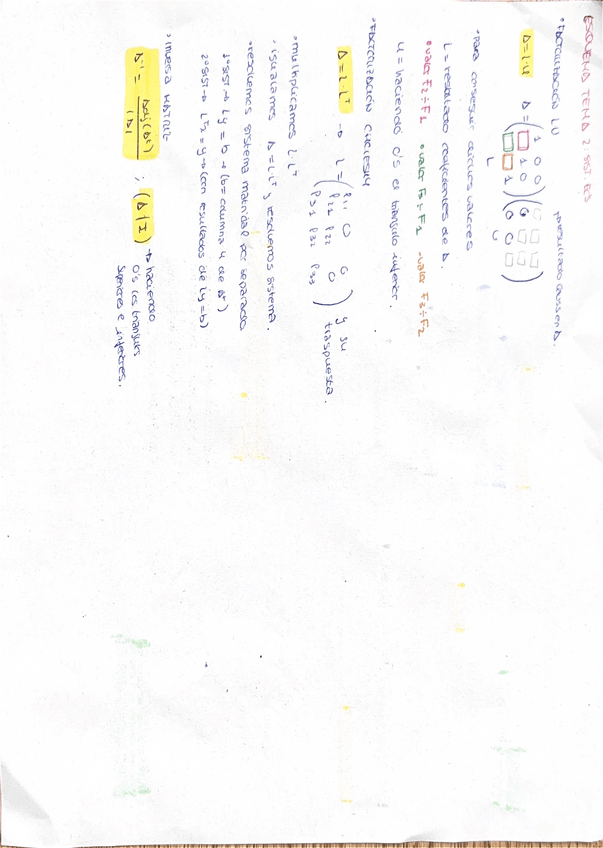 ESQUEMA TEMA 2 SIST. ES
• FACTORIZACIÓN LU
A = L·U A = (1 0 0 □ 1 0 □ □ 1) (□ □ □ 0 □ □ 0 0 □) → resultado Gauss en A.
L U
• Para conseguir dichos valores
L = resultado coeficientes de A.
• valor F2 ÷ F1 • valor F3 ÷ F1 • valor F3 ÷ F2
U = haciendo 0's el triángulo inferior.
• FACTORIZACIÓN CHOLESKY
A = L · Lᵀ → L = (l11 0 0 l21 l22 0 l31 l32 l33) y su traspuesta.
• multiplicamos L·Lᵀ
• igualamos A = L Lᵀ y resolvemos sistema.
• resolvemos sistema matricial por separado
1º SIST → Ly = b → (b = columna 4 de A*)
2º SIST → Lᵀx = y → (con resultados de Ly = b)
• INVERSA MATRIZ
A⁻¹ = Adj(Aᵗ) / |A| ; (A | I) → haciendo
0's los triángulos
superiores e inferiores.